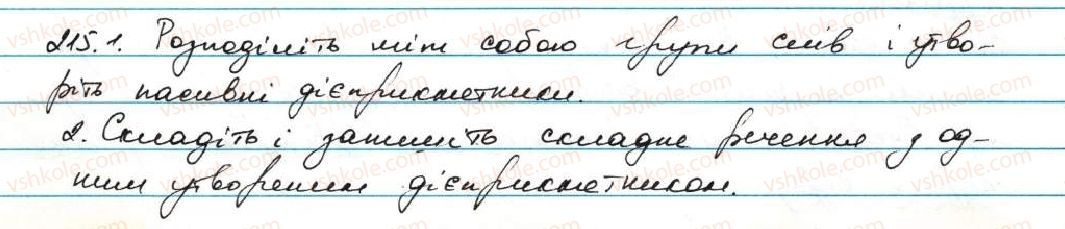 215.1. Розподіліть між собою групи слів і утво-
ріть пасивні дієприкметники.
2. Складіть і запишіть складне речення з од-
ним утвореним дієприкметником.